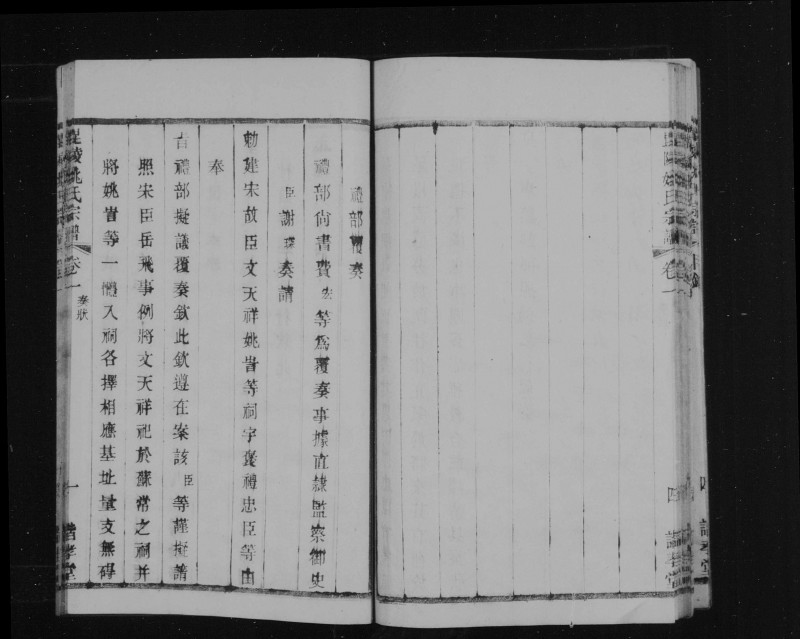 禮部覆奏
禮部尚書費宏等爲覆奏事據直隸監察御史
臣謝琛奏請
勅建宋故臣文天祥姚訔等祠宇褒禮忠臣等由
奉
旨禮部擬議覆奏欽此欽遵在案該臣等謹擬請
照宋臣岳飛事例將文天祥祀於蘇常之祠并
將姚訔等一體入祠各擇相應基址量支無碍
毘陵姚氏宗譜 卷一 奏狀 一